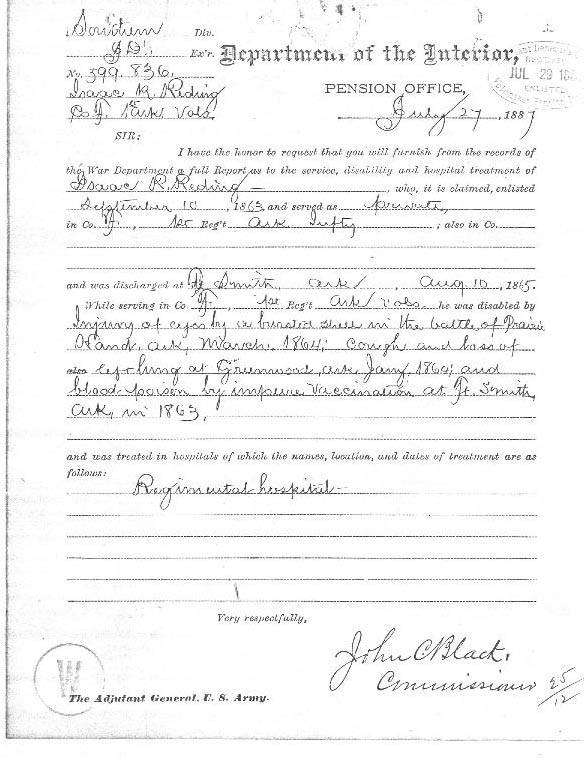 Southern Div.
Ex'r.
No. 599.836.
Isaac R. Reding
Co. F. 1st Ark Vols.
Department of the Interior,
PENSION OFFICE,
July 27, 1887
JUL 29 188
SIR:
I have the honor to request that you will furnish from the records of
the War Department a full Report as to the service, disability and hospital treatment of
Isaac R. Reding, who, it is claimed, enlisted
September 10, 1863, and served as Private,
in Co. F., 1st Reg't Ark Infty; also in Co.
and was discharged at Ft Smith, Ark, Aug 10, 1865.
While serving in Co. F., 1st Reg't Ark Vols he was disabled by
Injury of eyes by a bursted shell in the battle of Prairie
D'and, Ark, March, 1864; Cough and loss of
also left lung at Greenwood, Ark Jany, 1864; and
blood poison by impure Vaccination at Ft. Smith,
Ark, in 1863.
and was treated in hospitals of which the names, location, and dates of treatment are as
follows:
Regimental hospital
Very respectfully,
John C Black.
Commissioner
25/12
W
The Adjutant General, U. S. Army.